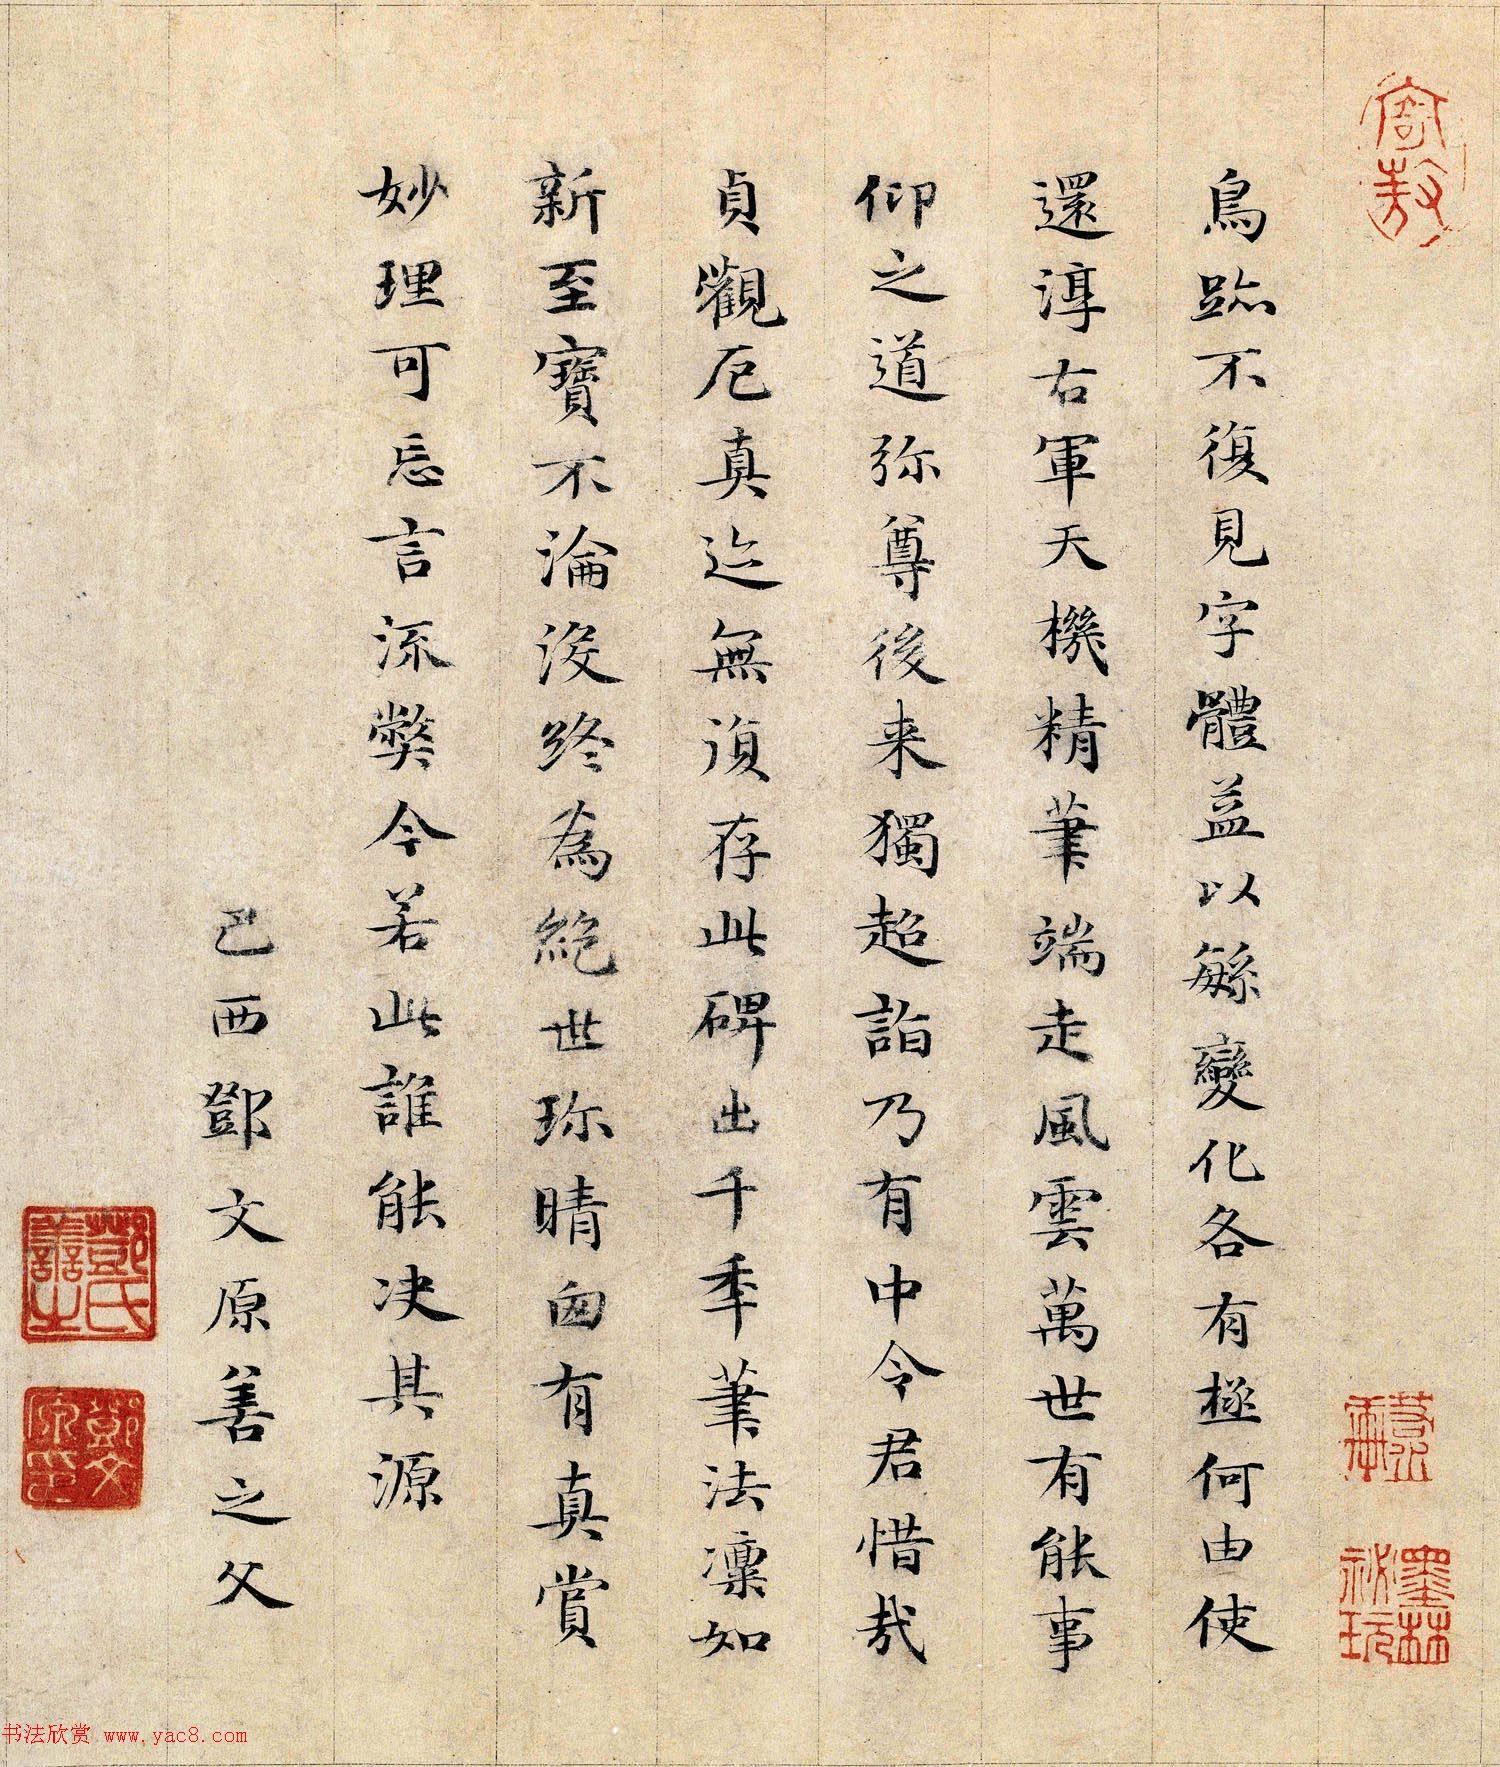 鳥跡不復見字體益以繇變化各有極何由使
還淳右軍天機精筆端走風雲萬世有能事
仰之道弥尊後来獨超詣乃有中令君惜哉
貞觀厄真迹無復存此碑出千年筆法凛如
新至寶不淪没終為絶世珎晴囱有真賞
妙理可忘言流弊今若此誰能决其源
巴西鄧文原善之父
鄧氏善之
鄧文原印
墨林祕玩
书法欣赏 www.yac8.com